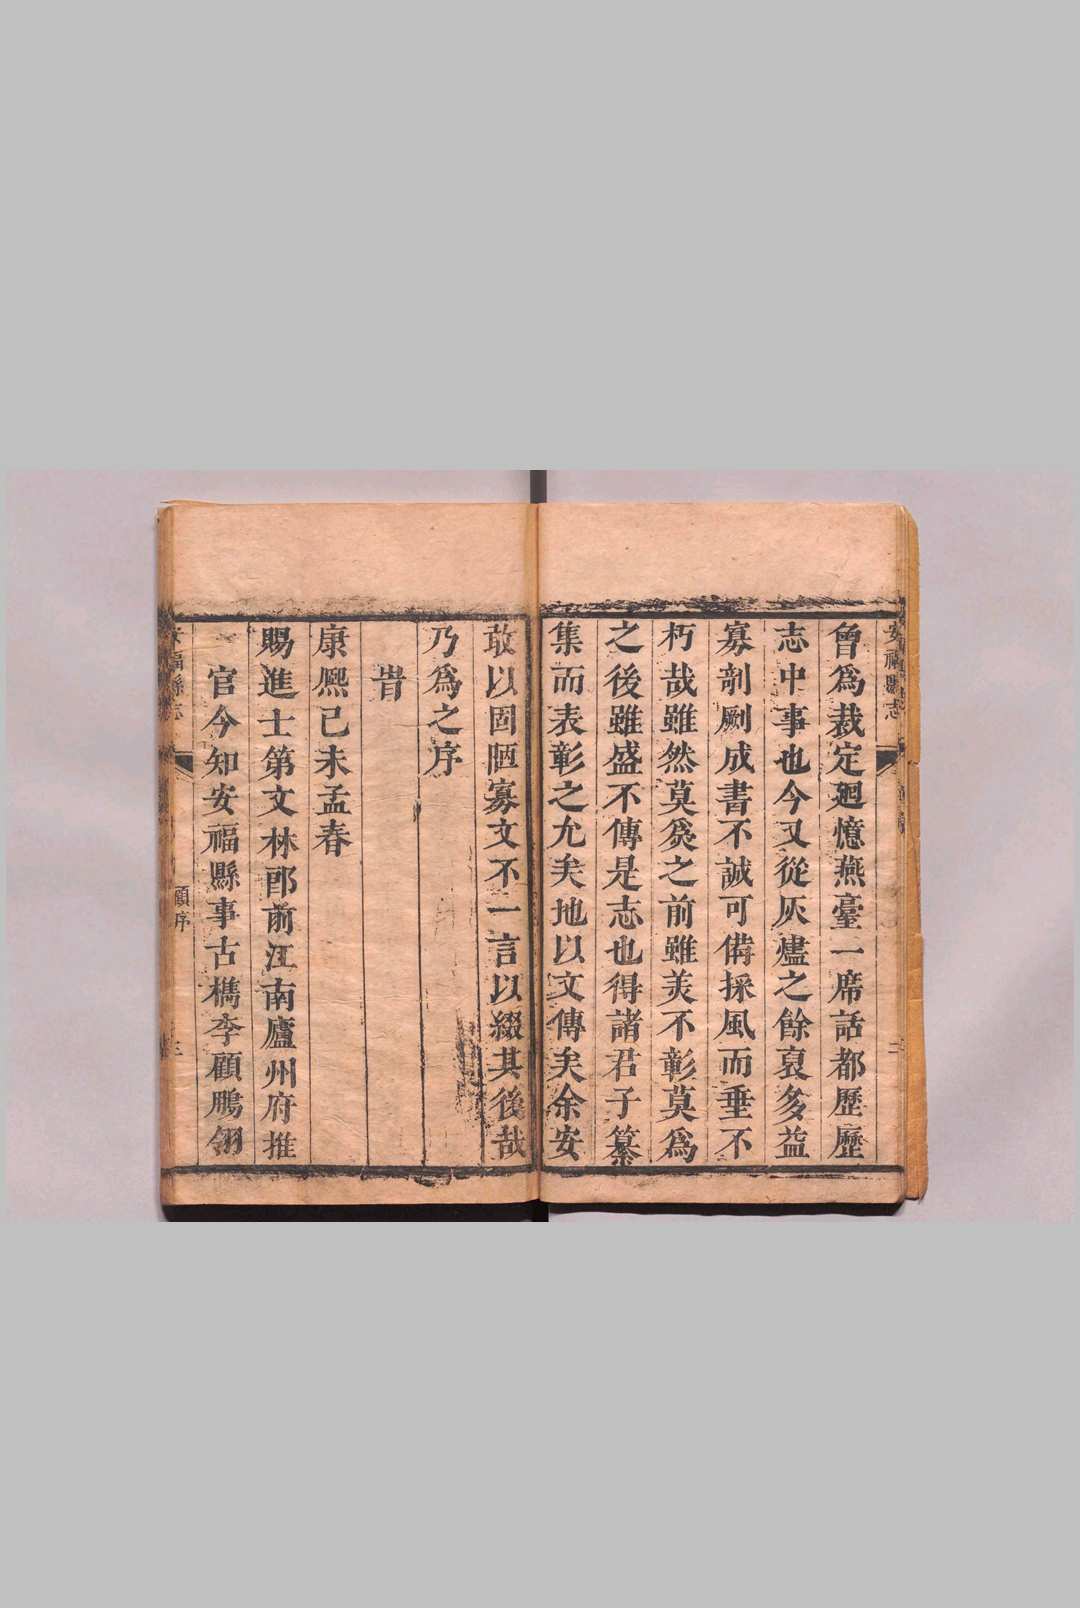 安福縣志
曾爲裁定廻憶燕臺一席話都歷歷
志中事也今又從灰燼之餘裒多益
寡剞劂成書不誠可備採風而垂不
朽哉雖然莫爲之前雖美不彰莫爲
之後雖盛不傳是志也得諸君子纂
集而表彰之允矣地以文傳矣余安
敢以固陋寡文不一言以綴其後哉
乃爲之序
旹
康熙己未孟春
賜進士第文林郎前江南廬州府推
官今知安福縣事古檇李顧鵬翎
安福縣志
顧序
三